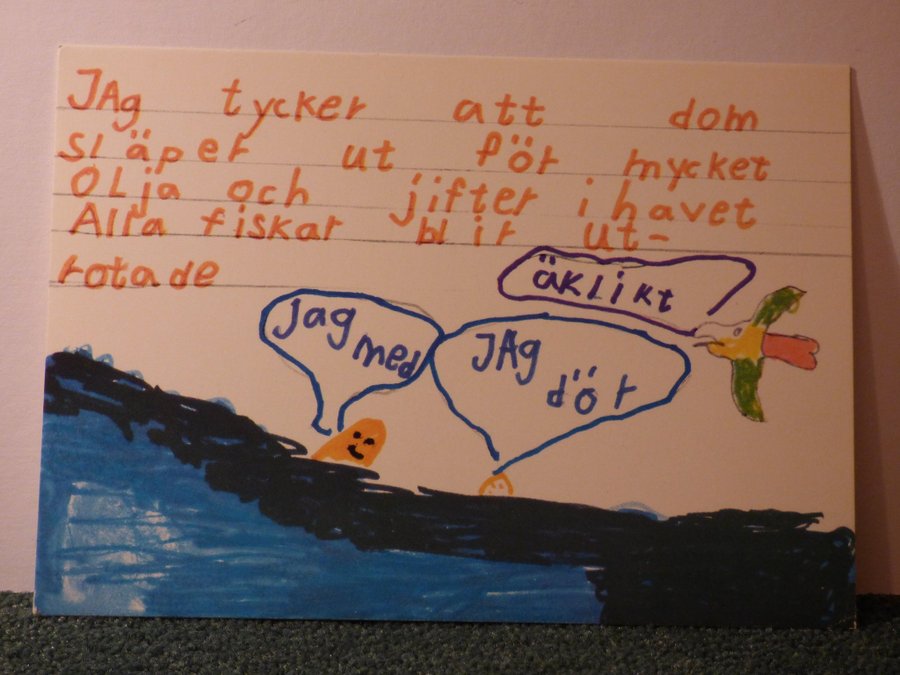 JAg tycker att dom
släper ut för mycket
olja och jifter i havet
Alla fiskar blir ut-
rotade
äklikt
Jag med
JAg dör